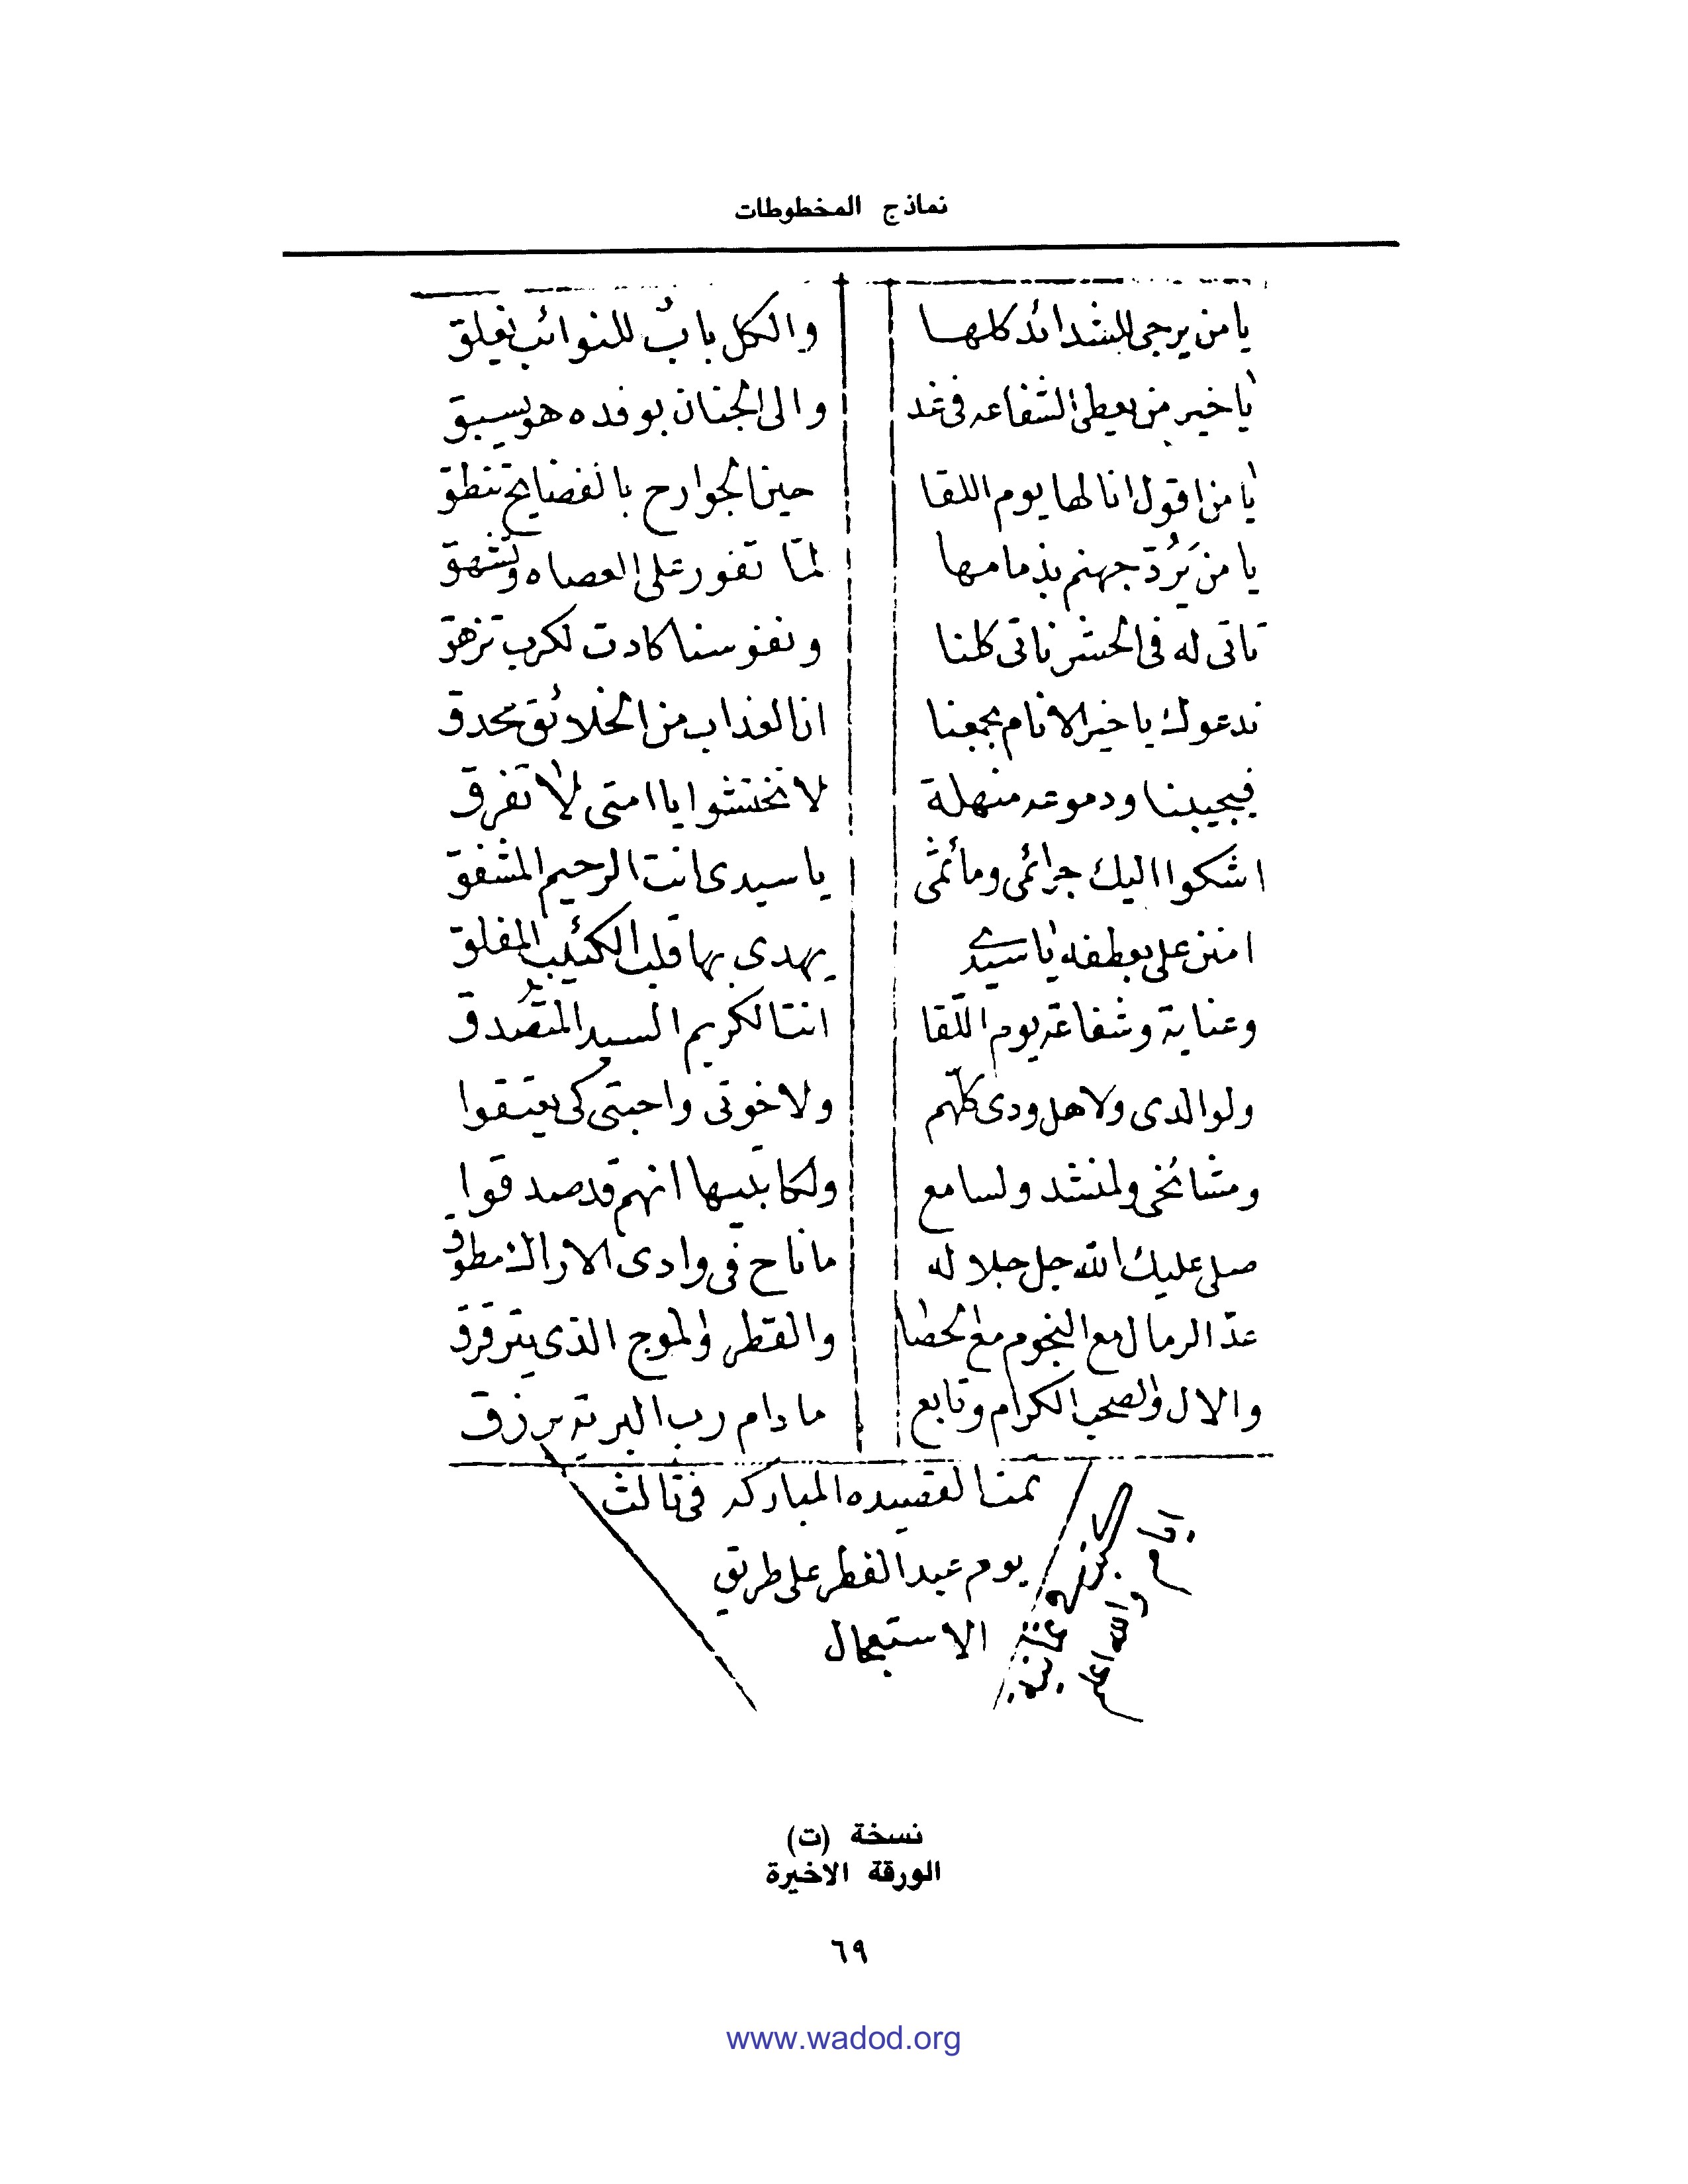 نماذج المخطوطات
يا من يرجى للشدائد كلها والكل بابٌ للنوائب يغلق
يا خير من يعطى الشفاعه فى غد والى الجنان بوفده هو يسبق
يا من اقول انا لها يوم اللقا حين الجوارح بالفضايح تنطق
يا من يَرُدّ جهنم بذمامها لمّا تفور على العصاه وتشهق
تاتى له فى الحشر ناتى كلنا ونفوسنا كادت لكرب تزهق
ندعوك يا خير الانام بجمعنا انا لعذاب من الخلائق محدق
فيجيبنا ودموعه منهلة لا تختشوا يا امتى لا تفرق
اشكوا اليك جرائمى ومأثمى يا سيدى انت الرحيم المشفق
امنن على بعطفه يا سيدى يهدى بها قلب الكئيب المقلق
وعناية وشفاعة يوم اللّقا انت الكريم السيد المتصدق
ولوالدى ولاهل ودى كلّهم ولاخوتى واحبتى كى يعتقوا
ومشائخى ولمنشد ولسامع ولكاتبيها انهم قد صدقوا
صلى عليك الله جل جلاله ما ناح فى وادى الاراك مطوق
عدّ الرمال مع النجوم مع الحصا والقطر والموج الذى يترقرق
والال والصحب الكرام وتابع ما دام رب البرية يرزق
تمت القصيده المباركه فى ثالث
يوم عيد الفطر على طريق
الاستعجال
والله اعلم
نسخة (ت)
الورقة الاخيرة
٦٩
www.wadod.org